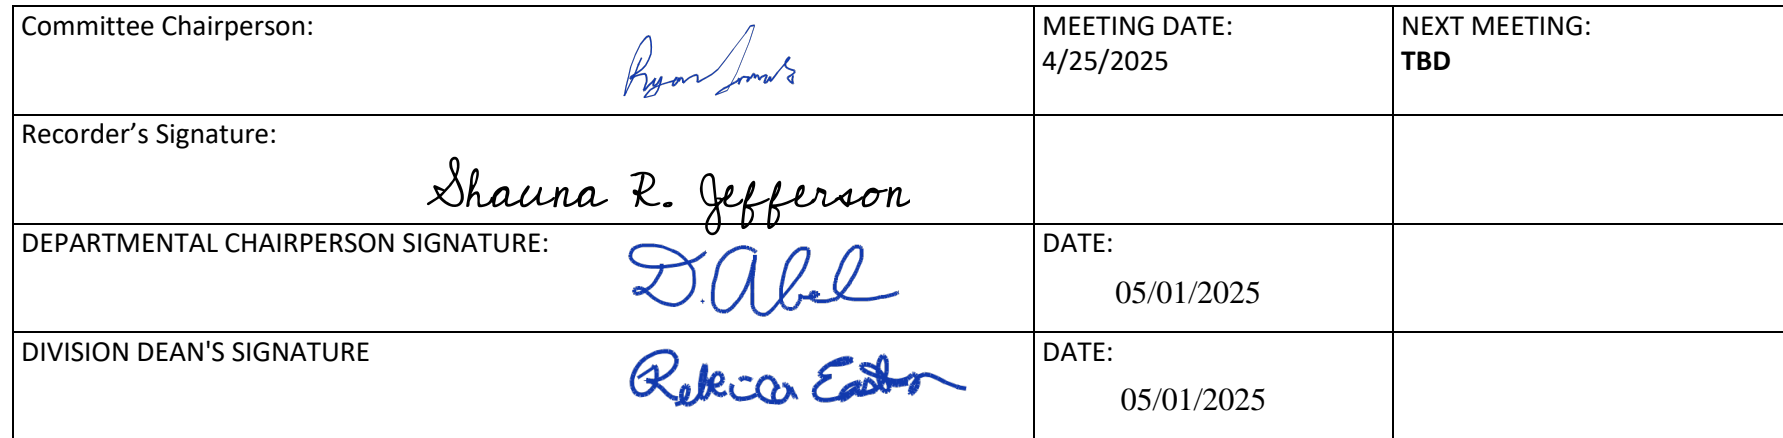 Committee Chairperson:
Ryan
MEETING DATE:
4/25/2025
NEXT MEETING:
TBD
Recorder’s Signature:
Shauna R. Jefferson
DEPARTMENTAL CHAIRPERSON SIGNATURE:
D. Abel
DATE:
05/01/2025
DIVISION DEAN'S SIGNATURE
Rebecca
DATE:
05/01/2025